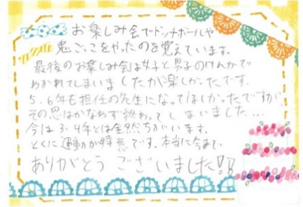 お楽しみ会でドッチボールや
鬼ごっこをやったのを覚えています。
最後のお楽しみ会は女子と男子のけんかで
わかれてしまいましたが楽しかったです。
5.6年も担任の先生になってほしかったですが、
その思いはかなわず終わってしまいました…
今は3.4年とは全然ちがいます。
とくに運動が特長です。本当に今まで
ありがとうございました!!